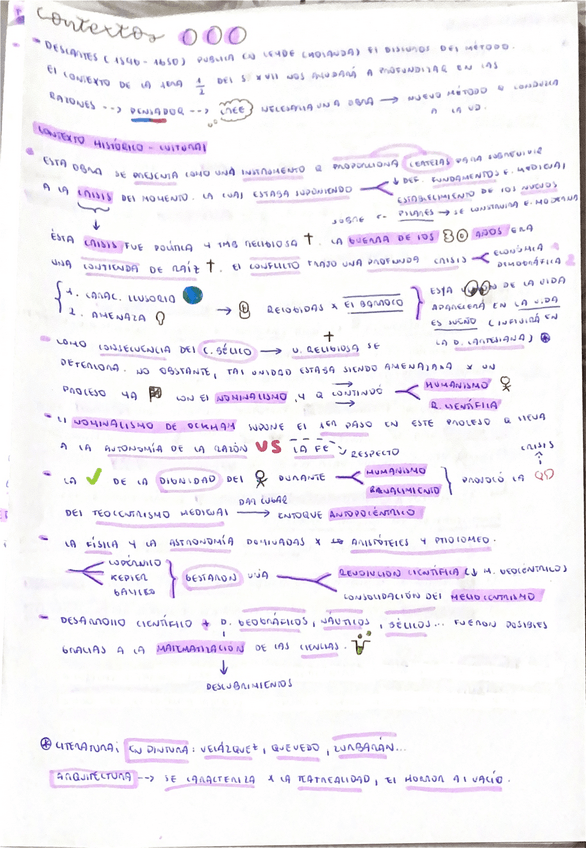 Contextos
- DESCARTES (1596 - 1650) PUBLICA EN LEYDE (HOLANDA) El DISCURSO DEL MÉTODO.
El CONTEXTO DE LA 1ERA 1/2 DEL S XVII NOS AYUDARÁ A PROFUNDIZAR EN LAS
RAZONES --> PENSADOR --> CREE NECESARIA UNA OBRA → NUEVO MÉTODO Q CONDUZCA
A LA VD.
CONTEXTO HISTÓRICO - CULTURAL
ESTA OBRA SE PRESENTA COMO UNA INSTRUMENTO Q PROPORCIONA CERTEZAS PARA SOBREVIVIR
A LA CRISIS DEL MOMENTO. LA CUAL ESTABA SUPONIENDO
↓ DEF. FUNDAMENTOS E. MEDIEVAL
ESTABLECIMIENTO DE lOS NUEVOS
PILARES → SE CONSTRUIRÁ E. MODERNA
SOBRE
ÉSTA CRISIS FUE POLÍTICA Y TMB RELIGIOSA ✝. LA GUERRA DE lOS 30 AÑOS ERA
UNA CONTIENDA DE RAÍZ ✝. El CONFLICTO TRAJO UNA PROFUNDA CRISIS
ECONÓMICA
DEMOGRÁFICA
1. CARAC. ILUSORIO
2. AMENAZA
→ RECOGIDAS X El BARROCO
ESTA DE LA VIDA
APARECERÁ EN LA VIDA
ES SUEÑO (INFLUIRÁ EN
LA D. CARTESIANA) ⊛
- COMO CONSECUENCIA DEL C. BÉLICO → U. RELIGIOSA SE
DETERIORA. NO OBSTANTE, TAL UNIDAD ESTABA SIENDO AMENAZADA X UN
PROCESO YA CON El NOMINALISMO Y Q CONTINUÓ
HUMANISMO
R. CIENTÍFICA
- El NOMINALISMO DE OCKHAM SUPONE El 1ER PASO EN ESTE PROCESO Q LLEVA
A LA AUTONOMÍA DE LA RAZÓN VS LA FE RESPECTO
- LA ✓ DE LA DIGNIDAD DEL DURANTE
HUMANISMO
RENACIMIENTO
PROVOCÓ LA
CRISIS
DEL TEOCENTRISMO MEDIEVAL
DAR LUGAR
→ ENFOQUE ANTROPOCÉNTRICO
- LA FÍSICA Y LA ASTRONOMÍA DOMINADAS X ARISTÓTELES Y PTOLOMEO.
COPÉRNICO
KEPLER
GALILEO
GESTARON UNA
REVOLUCIÓN CIENTÍFICA M. GEOCÉNTRICOS
CONSOLIDACIÓN DEL HELIOCENTRISMO
- DESARROLLO CIENTÍFICO + D. GEOGRÁFICOS, NÁUTICOS, BÉLICOS... FUERON POSIBLES
GRACIAS A LA MATEMATIZACIÓN DE LAS CIENCIAS.
↓
DESCUBRIMIENTOS
⊛ LITERATURA; EN PINTURA: VELÁZQUEZ, QUEVEDO, ZURBARÁN...
ARQUITECTURA --> SE CARACTERIZA X LA TEATRALIDAD, El HORROR Al VACÍO.